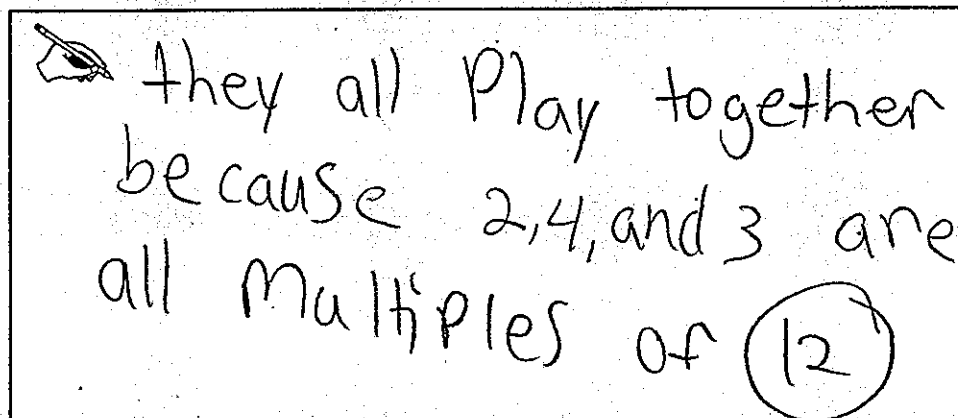 they all Play together
because 2,4, and 3 are
all Multiples of 12